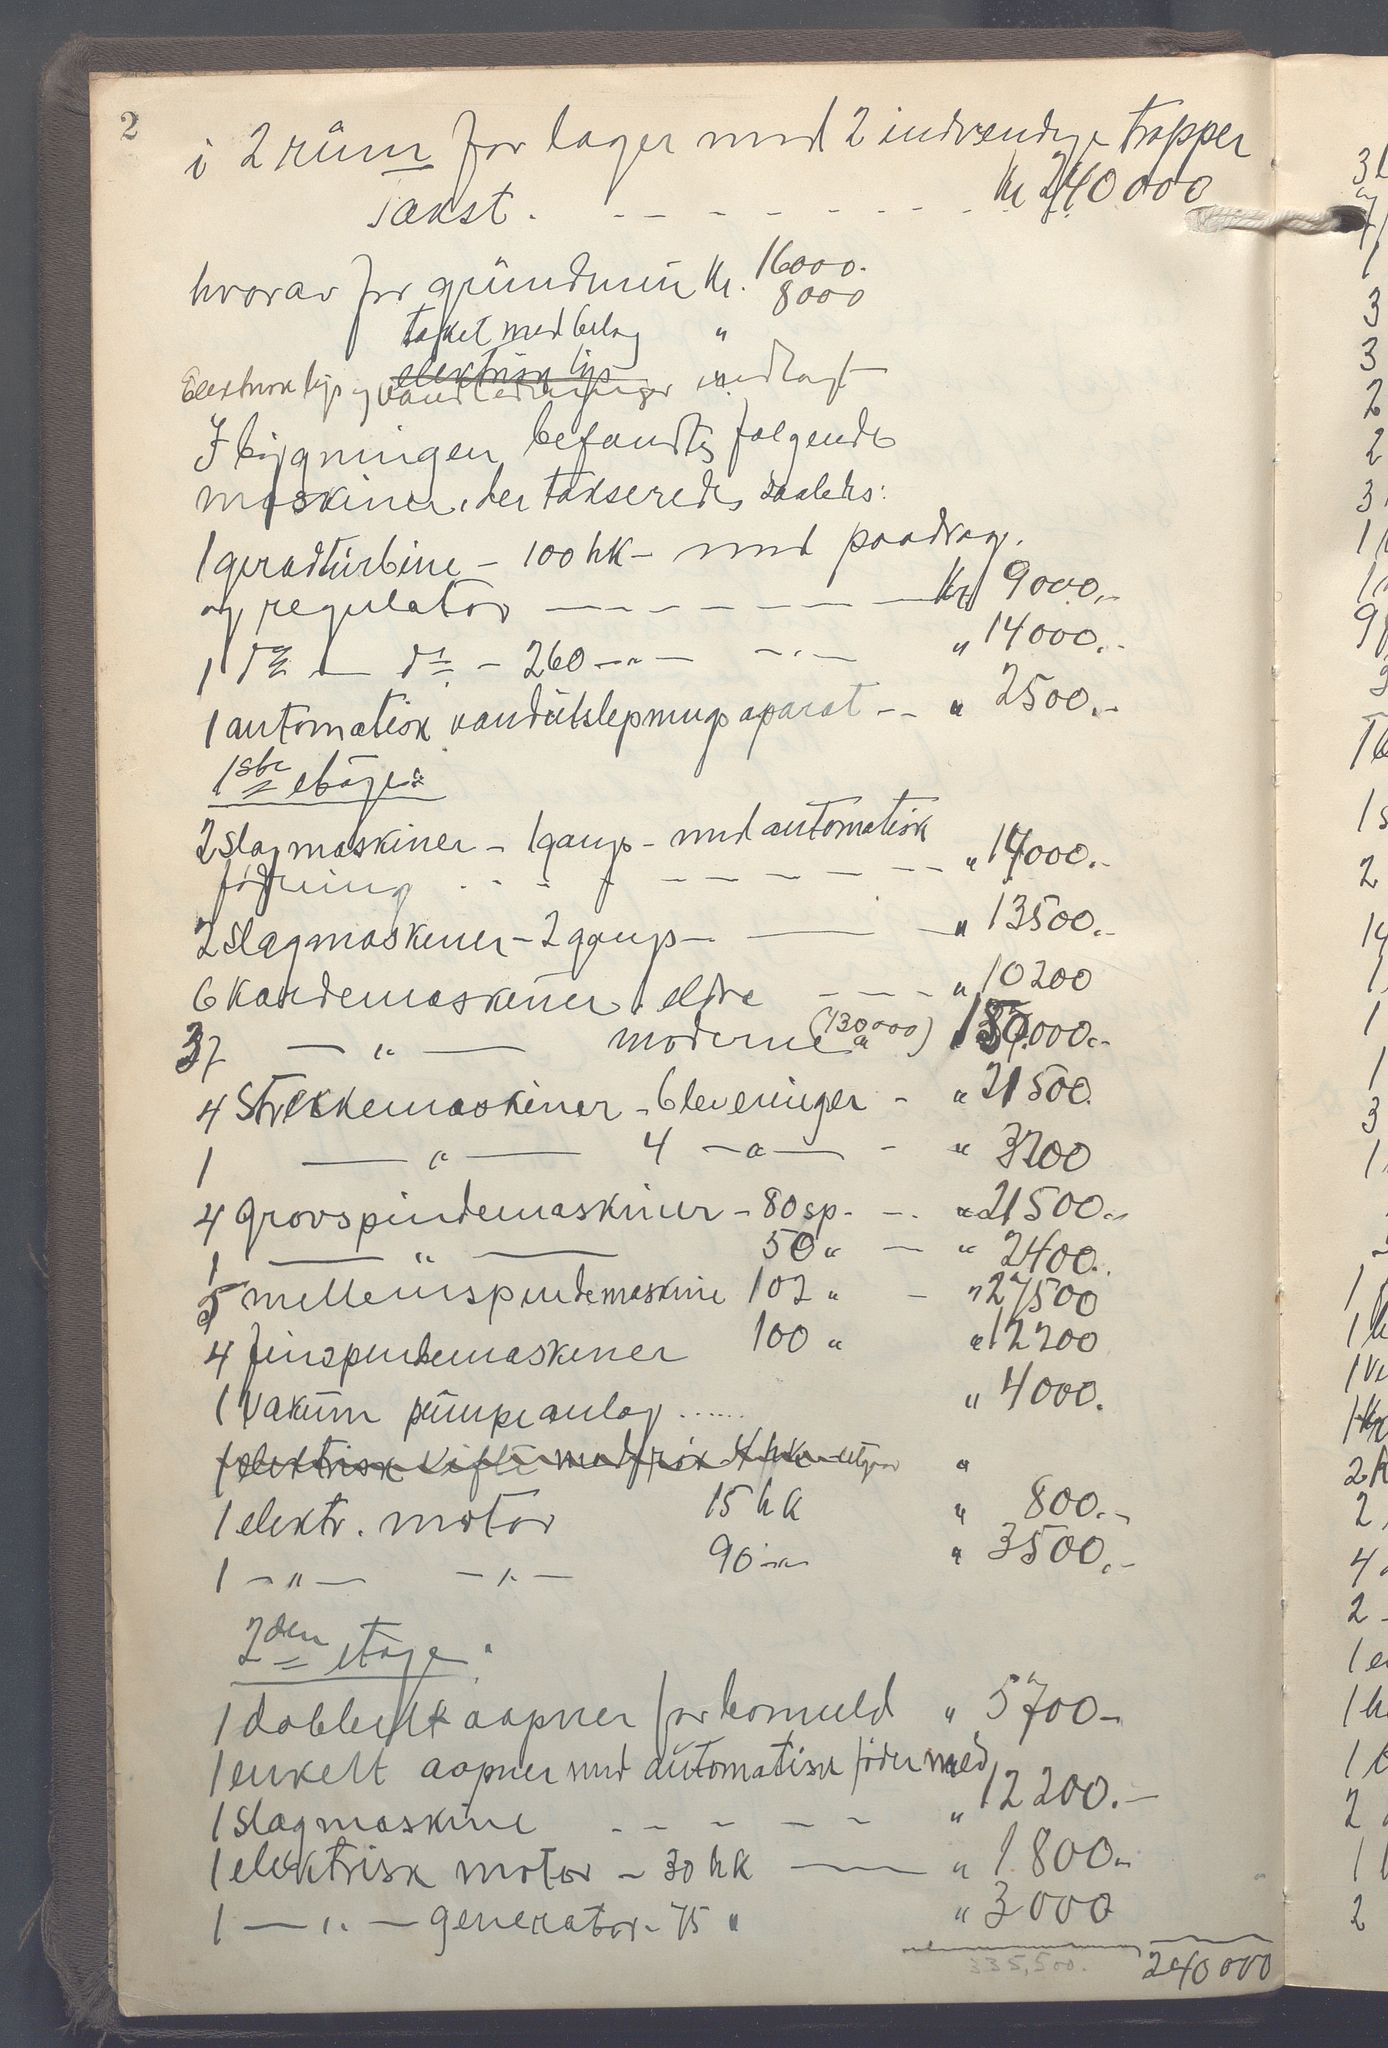 2
i 2 rŭm for lager med 2 indvendige trapper
Takst. - - - - - - - - Kr 240000
hvorav for grŭndmŭr Kr. 16000.
taket med belag " 8000
elektrisk lys
Elektrisk lys og vandledninger indlagt
I bygningen befandtes følgende
maskiner, der takseredes saaledes:
1 geradtŭrbine - 100 hk - med paadrag.
og regulator - - - - - - Kr 9000.-
1 do - do - 260 -"- -"- " 14000.-
1 automatisk vandŭtslepnings aparat -- " 2500.-
1ste etage:
2 slagmaskiner - 1 gangs - med automatisk
fødning - - - - - - - " 14000.-
2 slagmaskiner - 2 gangs - — - " 13500.-
6 Kardemaskiner, eldre - - - " 10200
37 — " — moderne (130000) " 185000.-
4 Strekkemaskiner - 6 leveringer - " 21500.
1 — " — 4 -"- - " 3200
4 grovspindemaskiner - 80 sp. - - " 21500.-
1 — " — 50 " - " 2400.
5 mellemspindemaskine 102 " - " 27500
4 finspindemaskiner 100 " " 12200
1 Vakŭm pŭmpeanlag ...... " 4000.
1 elektrisk vifte med hk "
1 elektr. motor 15 hk " 800.-
1 -"- -"- 90 -"- " 3500.-
2den etage:
1 dobbelt aapner for bomuld " 5700.-
1 enkelt aapner med automatisk føder med
1 slagmaskine - - - - - " 12200.-
1 elektrisk motor - 30 hk — " 1800.-
1 -"- generator - 75 " " 3000
335,500. 240000